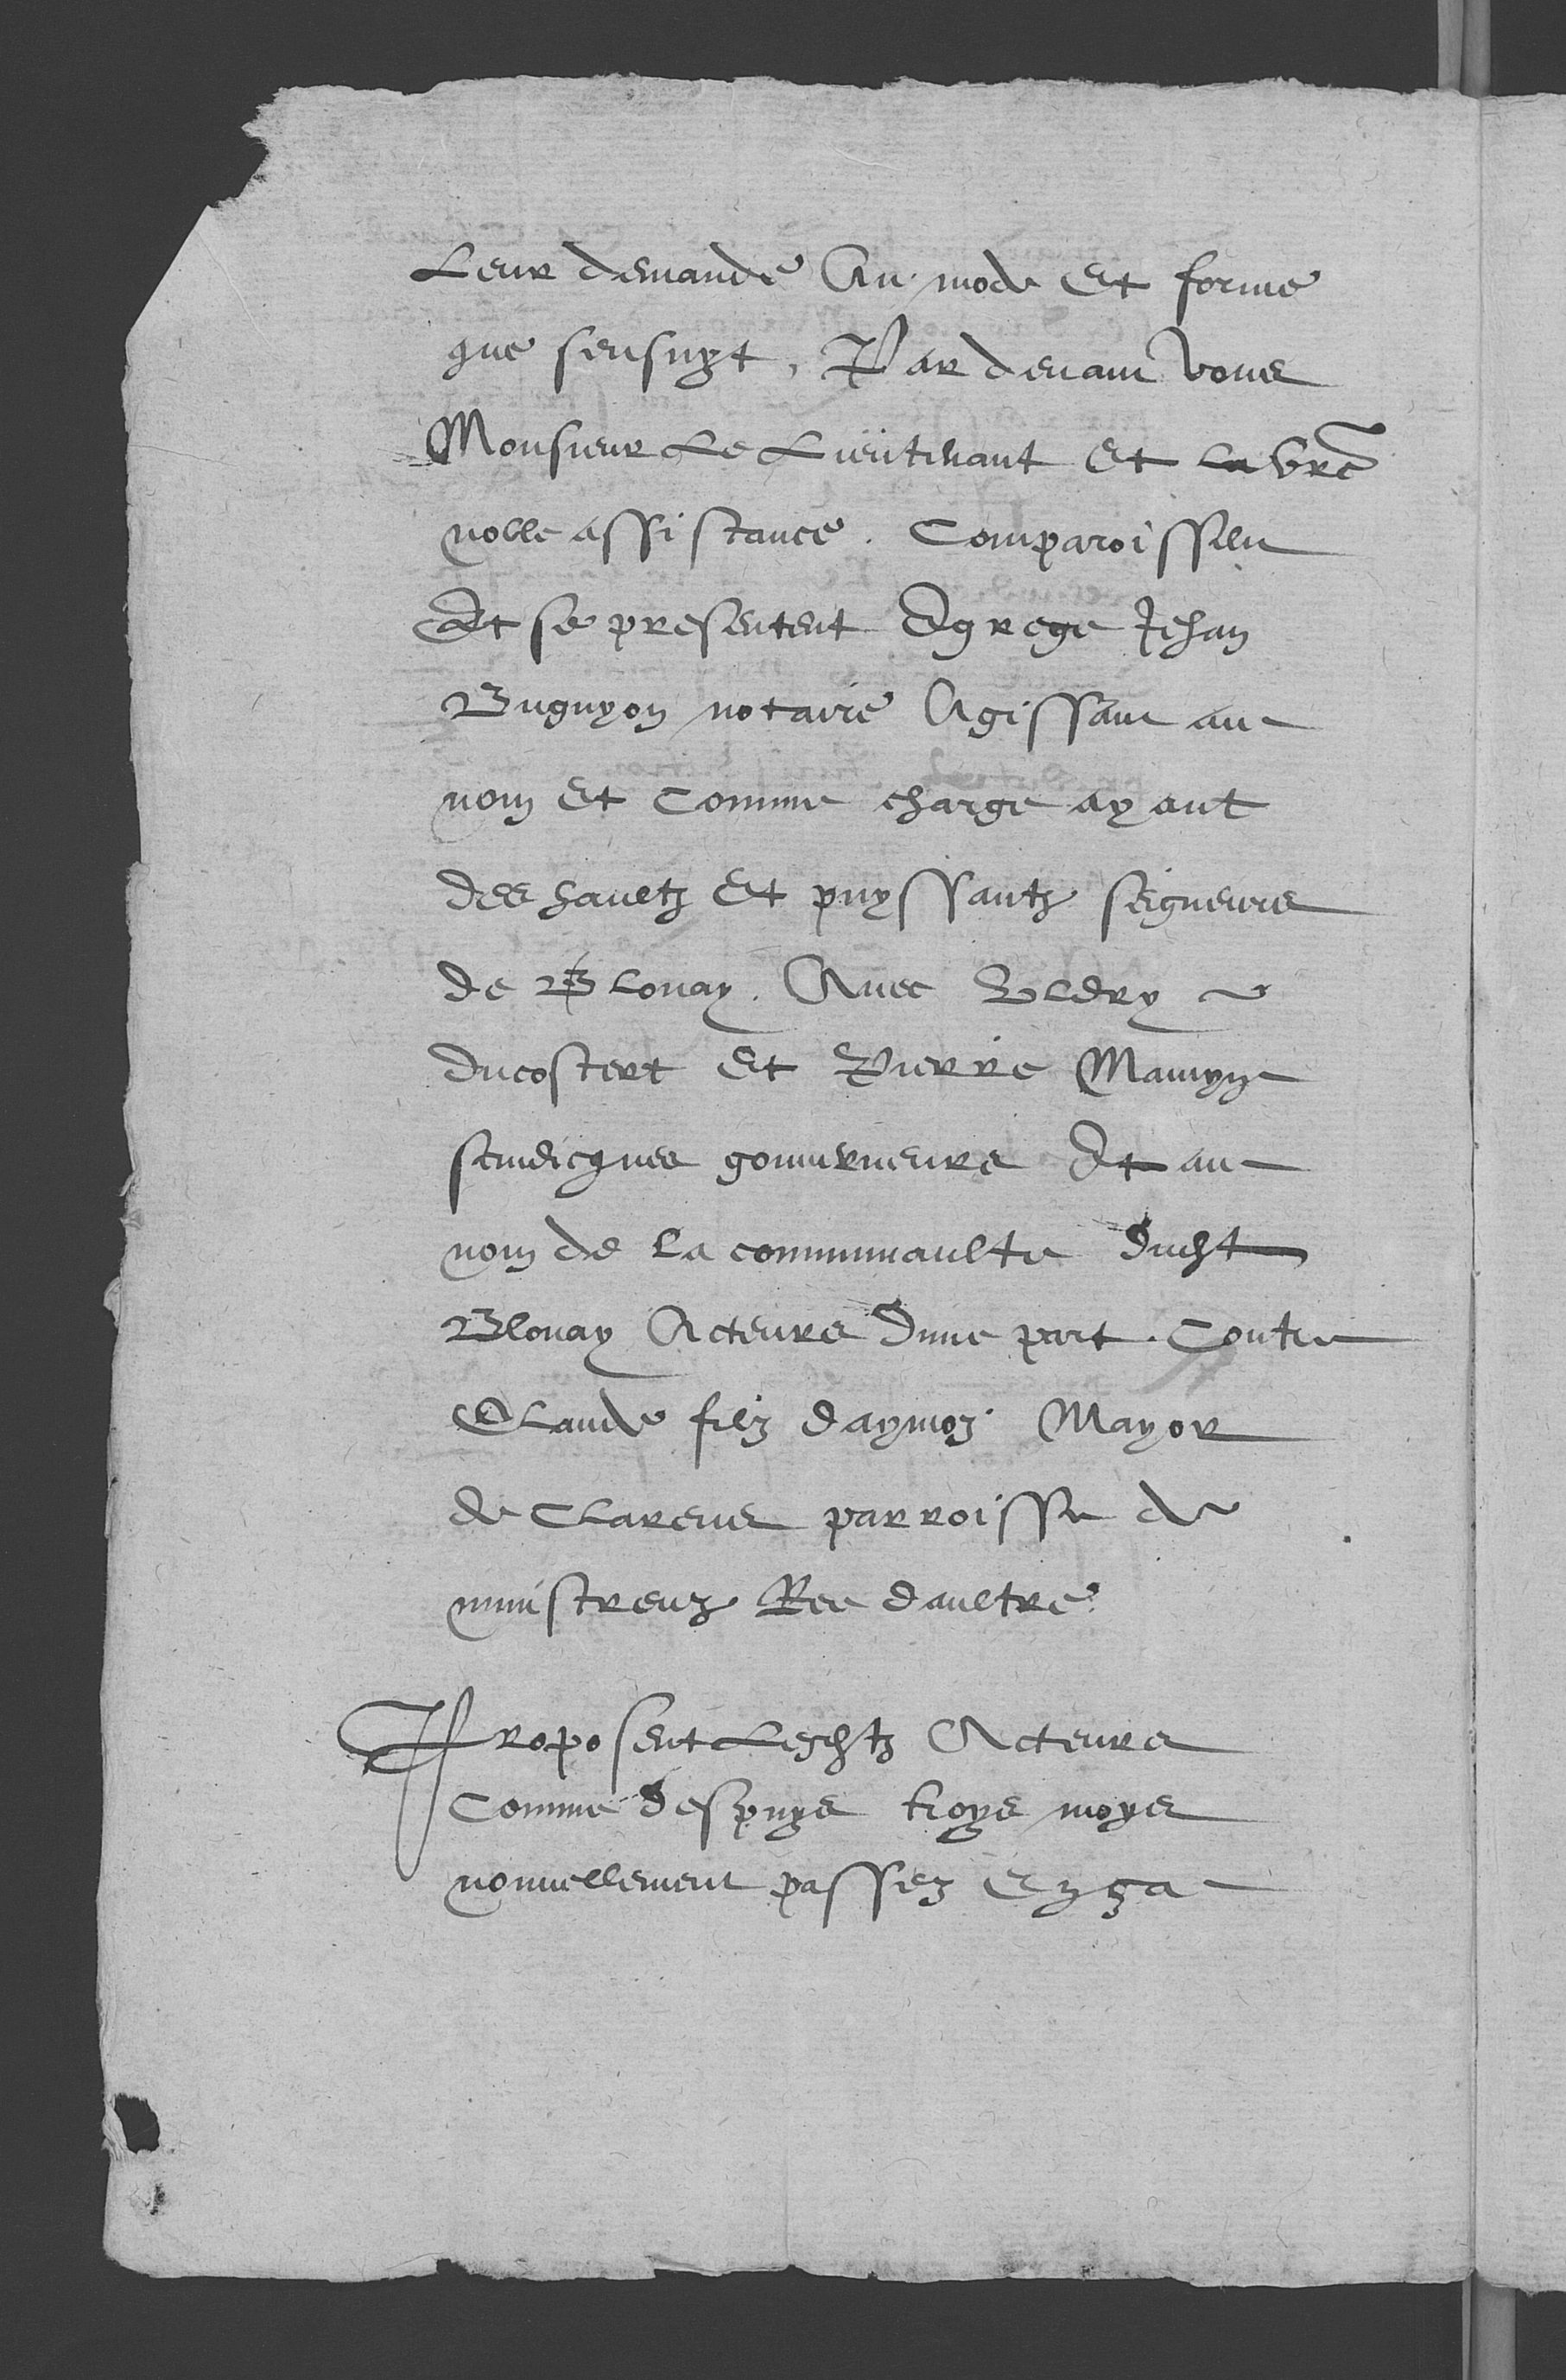 Leur demande Au mode Et forme
que sensuyt, Par devant vous
Monsieur Le Lieutenant Et la vre
nolle assistance. Comparoissent
Et se presentent Egrege Jehan
Buguyon notaire Agissant au
nom Et Comme charge ayant
des haultz Et puyssantz seigneurs
de Blonay. Avec Bldry
Ducostert Et Pierre Mamyn
scindicques gouverneurs Et au
nom de la communaulte dudt
Blonay Acteurs dune part. Contre
Claude filz daymoz Mayor
de Clarens parroisse de
mustreuz Ree daultre
Proposent Lesdtz Acteurs
Comme despuys troys moys
nouvellement passez Ença